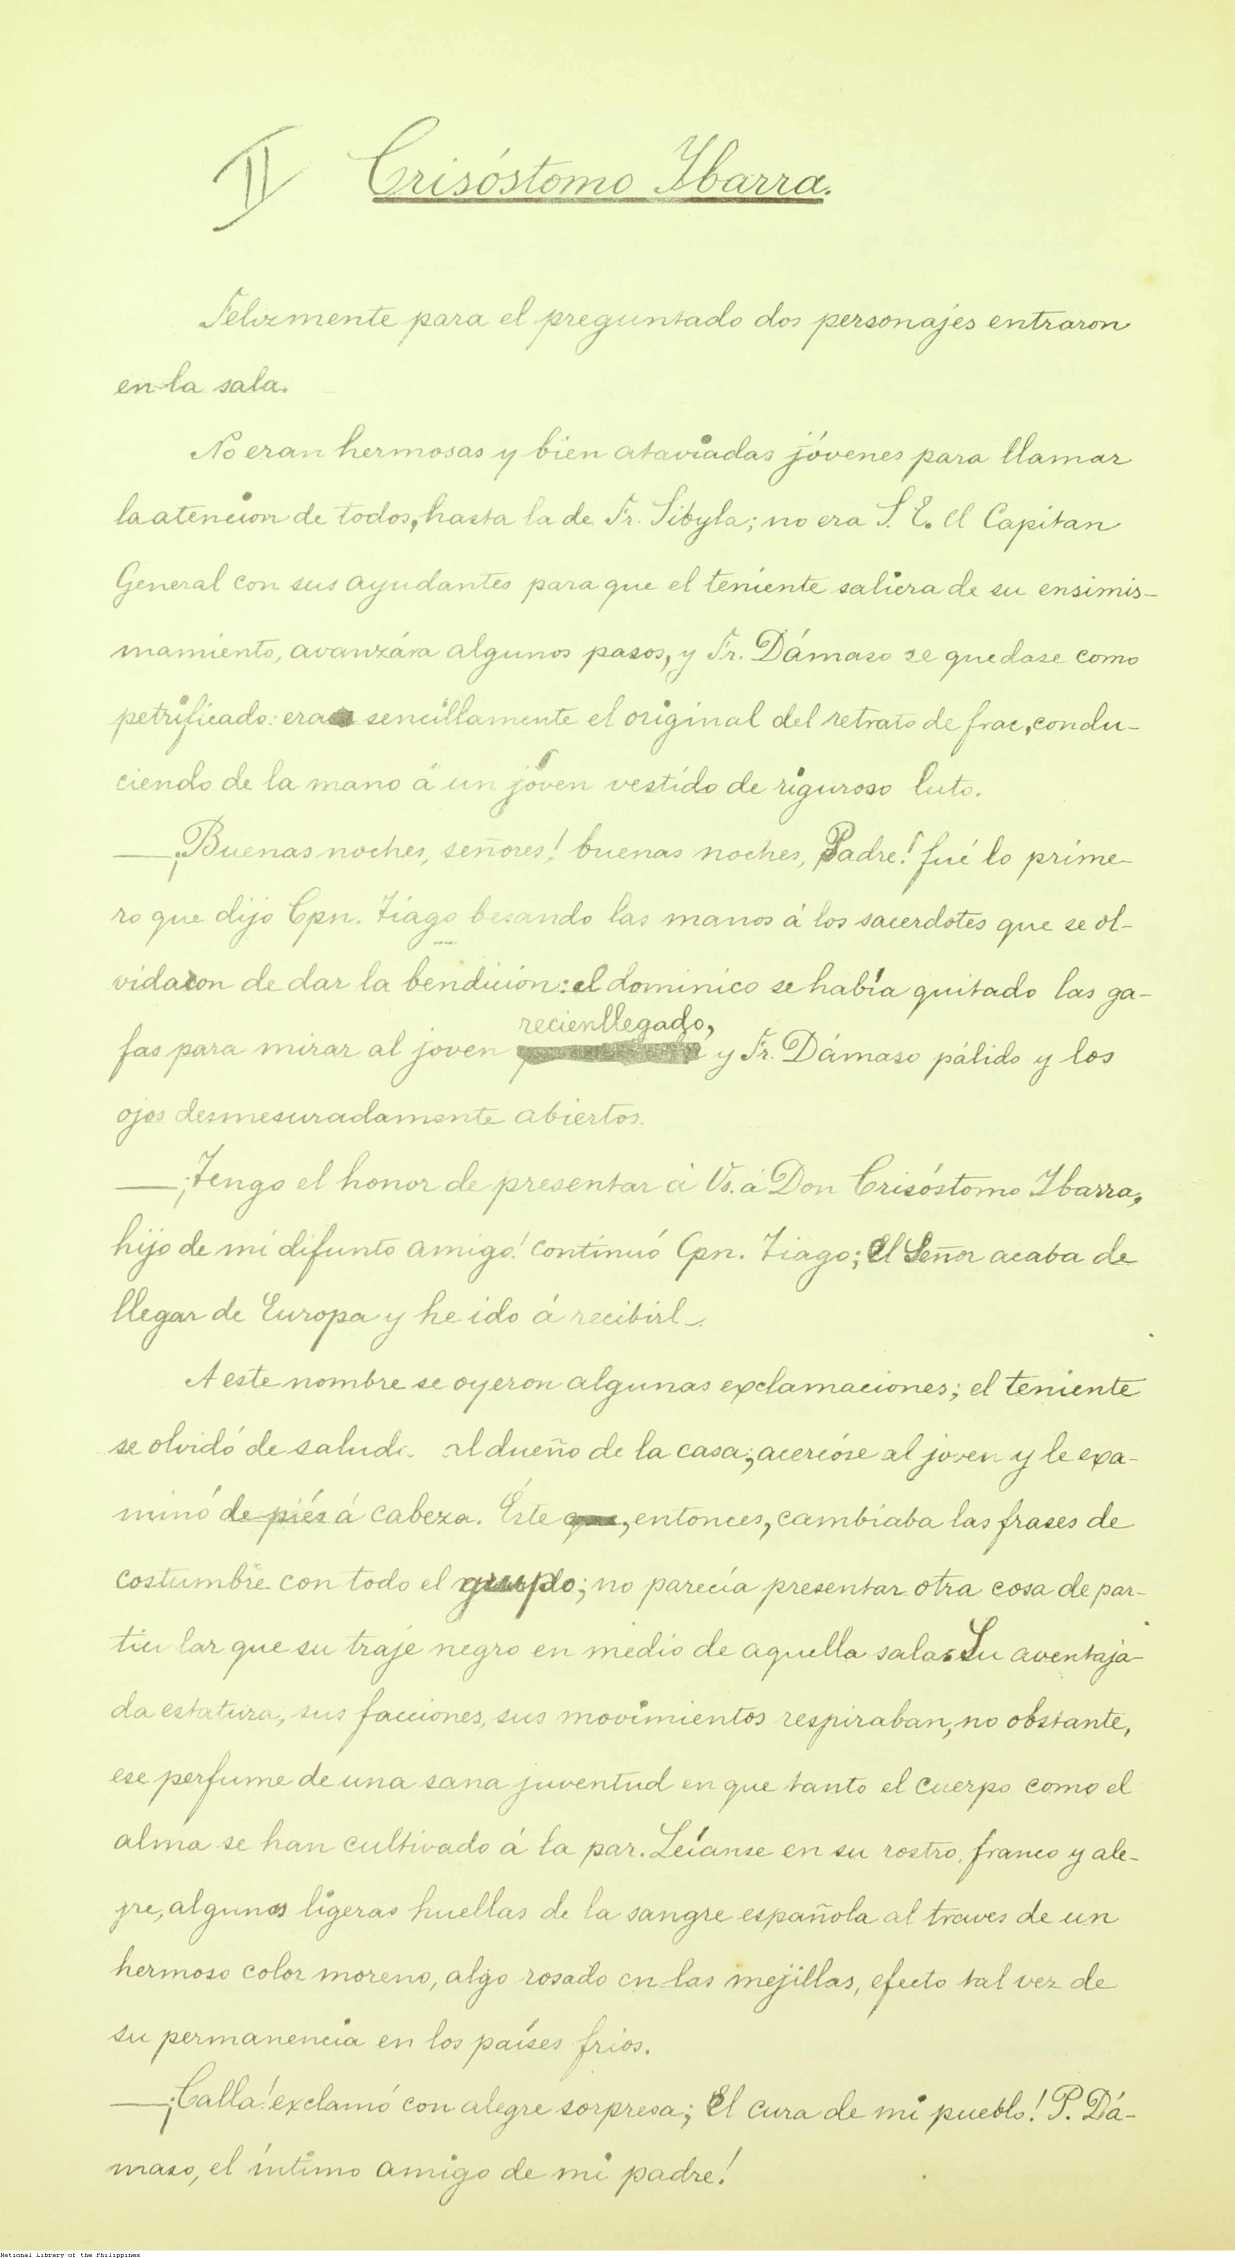 II Crisóstomo Ibarra.
Felizmente para el preguntado dos personajes entraron
en la sala.
No eran hermosas y bien ataviadas jóvenes para llamar
la atencion de todos, hasta la de Fr. Sibyla; no era S. E. el Capitan
General con sus ayudantes para que el teniente saliera de su ensimis-
mamiento, avanzára algunos pasos, y Fr. Dámaso se quedase como
petrificado: era sencillamente el original del retrato de frac, condu-
ciendo de la mano á un jóven vestido de riguroso luto.
—¡Buenas noches, señores! buenas noches, Padre! fué lo prime-
ro que dijo Cpn. Tiago besando las manos á los sacerdotes que se ol-
vidaron de dar la bendicion: el dominico se había quitado las ga-
recienllegado,
fas para mirar al joven y Fr. Dámaso pálido y los
ojos desmesuradamente abiertos.
—¡Tengo el honor de presentar á Vs. á Don Crisóstomo Ibarra,
hijo de mi difunto amigo! continuó Cpn. Tiago; el Señor acaba de
llegar de Europa y he ido á recibirl
A este nombre se oyeron algunas exclamaciones; el teniente
se olvidó de salud al dueño de la casa; acercóse al joven y le exa-
minó de piés á cabeza. Éste, entonces, cambiaba las frases de
costumbre con todo el grupo; no parecía presentar otra cosa de par-
ticular que su traje negro en medio de aquella sala. Su aventaja-
da estatura, sus facciones, sus movimientos respiraban, no obstante,
ese perfume de una sana juventud en que tanto el cuerpo como el
alma se han cultivado á la par. Leíanse en su rostro, franco y ale-
gre, algunas ligeras huellas de la sangre española al traves de un
hermoso color moreno, algo rosado en las mejillas, efecto tal vez de
su permanencia en los países frios.
—¡Calla! exclamó con alegre sorpresa; El cura de mi pueblo! P. Dá-
maso, el íntimo amigo de mi padre!
National Library of the Philippines